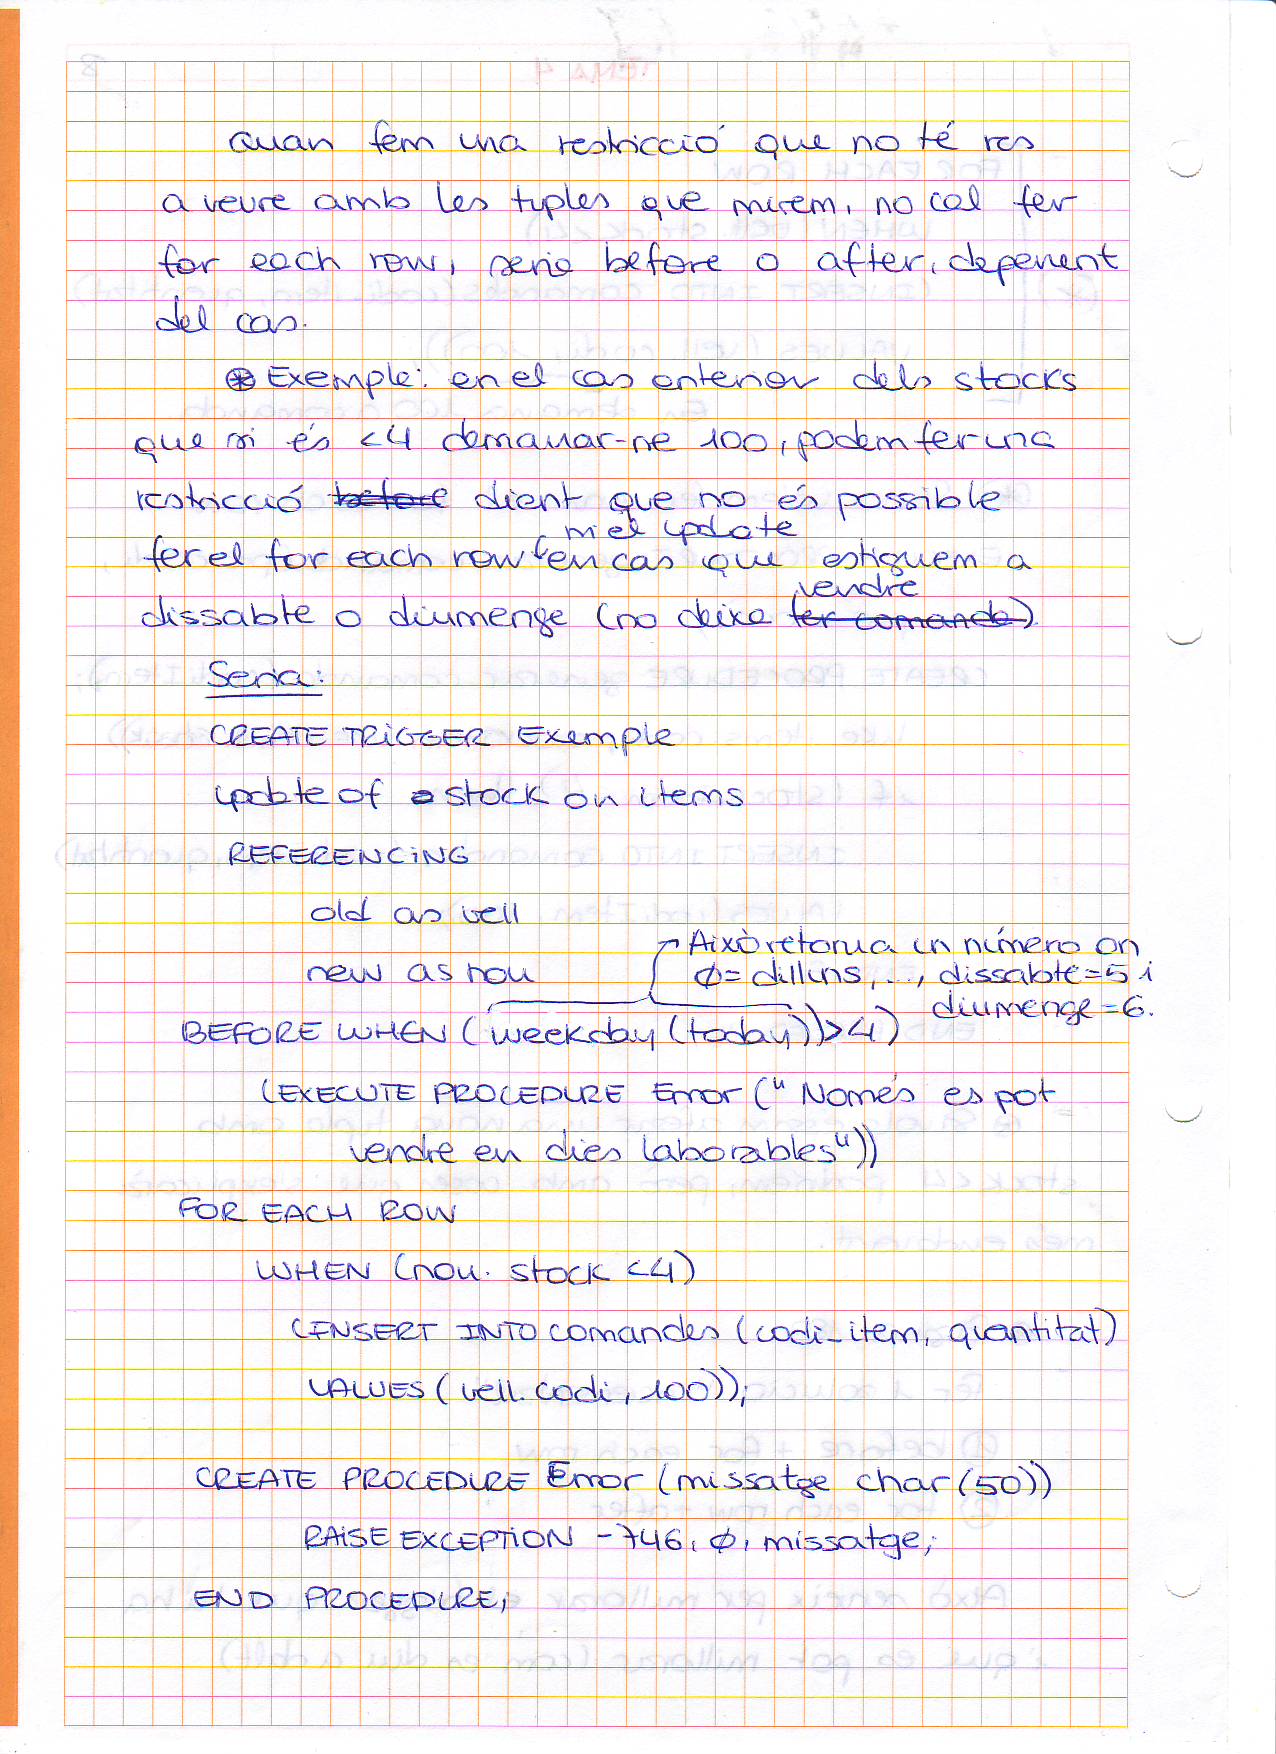 Quan fem una restricció que no té res
a veure amb les tuples que mirem, no cal fer
for each row, seria before o after, depenent
del cas.
⊛ Exemple: en el cas anterior dels stocks
que si és <4 demanar-ne 100, podem fer una
restricció before dient que no és possible
fer el for each row ni el update en cas que estiguem a
dissabte o diumenge (no deixa fer comanda vendre).
Seria:
CREATE TRIGGER Exemple
update of stock on items
REFERENCING
old as vell
new as nou
Això retorna un número on
ø= dilluns, ..., dissabte=5 i
diumenge=6.
BEFORE WHEN (weekday(today))>4)
(EXECUTE PROCEDURE Error ("Només es pot
vendre en dies laborables"))
FOR EACH ROW
WHEN (nou. stock <4)
(INSERT INTO comandes (codi_item, quantitat)
VALUES (vell.codi, 100));
CREATE PROCEDURE Error (missatge char(50))
RAISE EXCEPTION -746, ø, missatge;
END PROCEDURE;